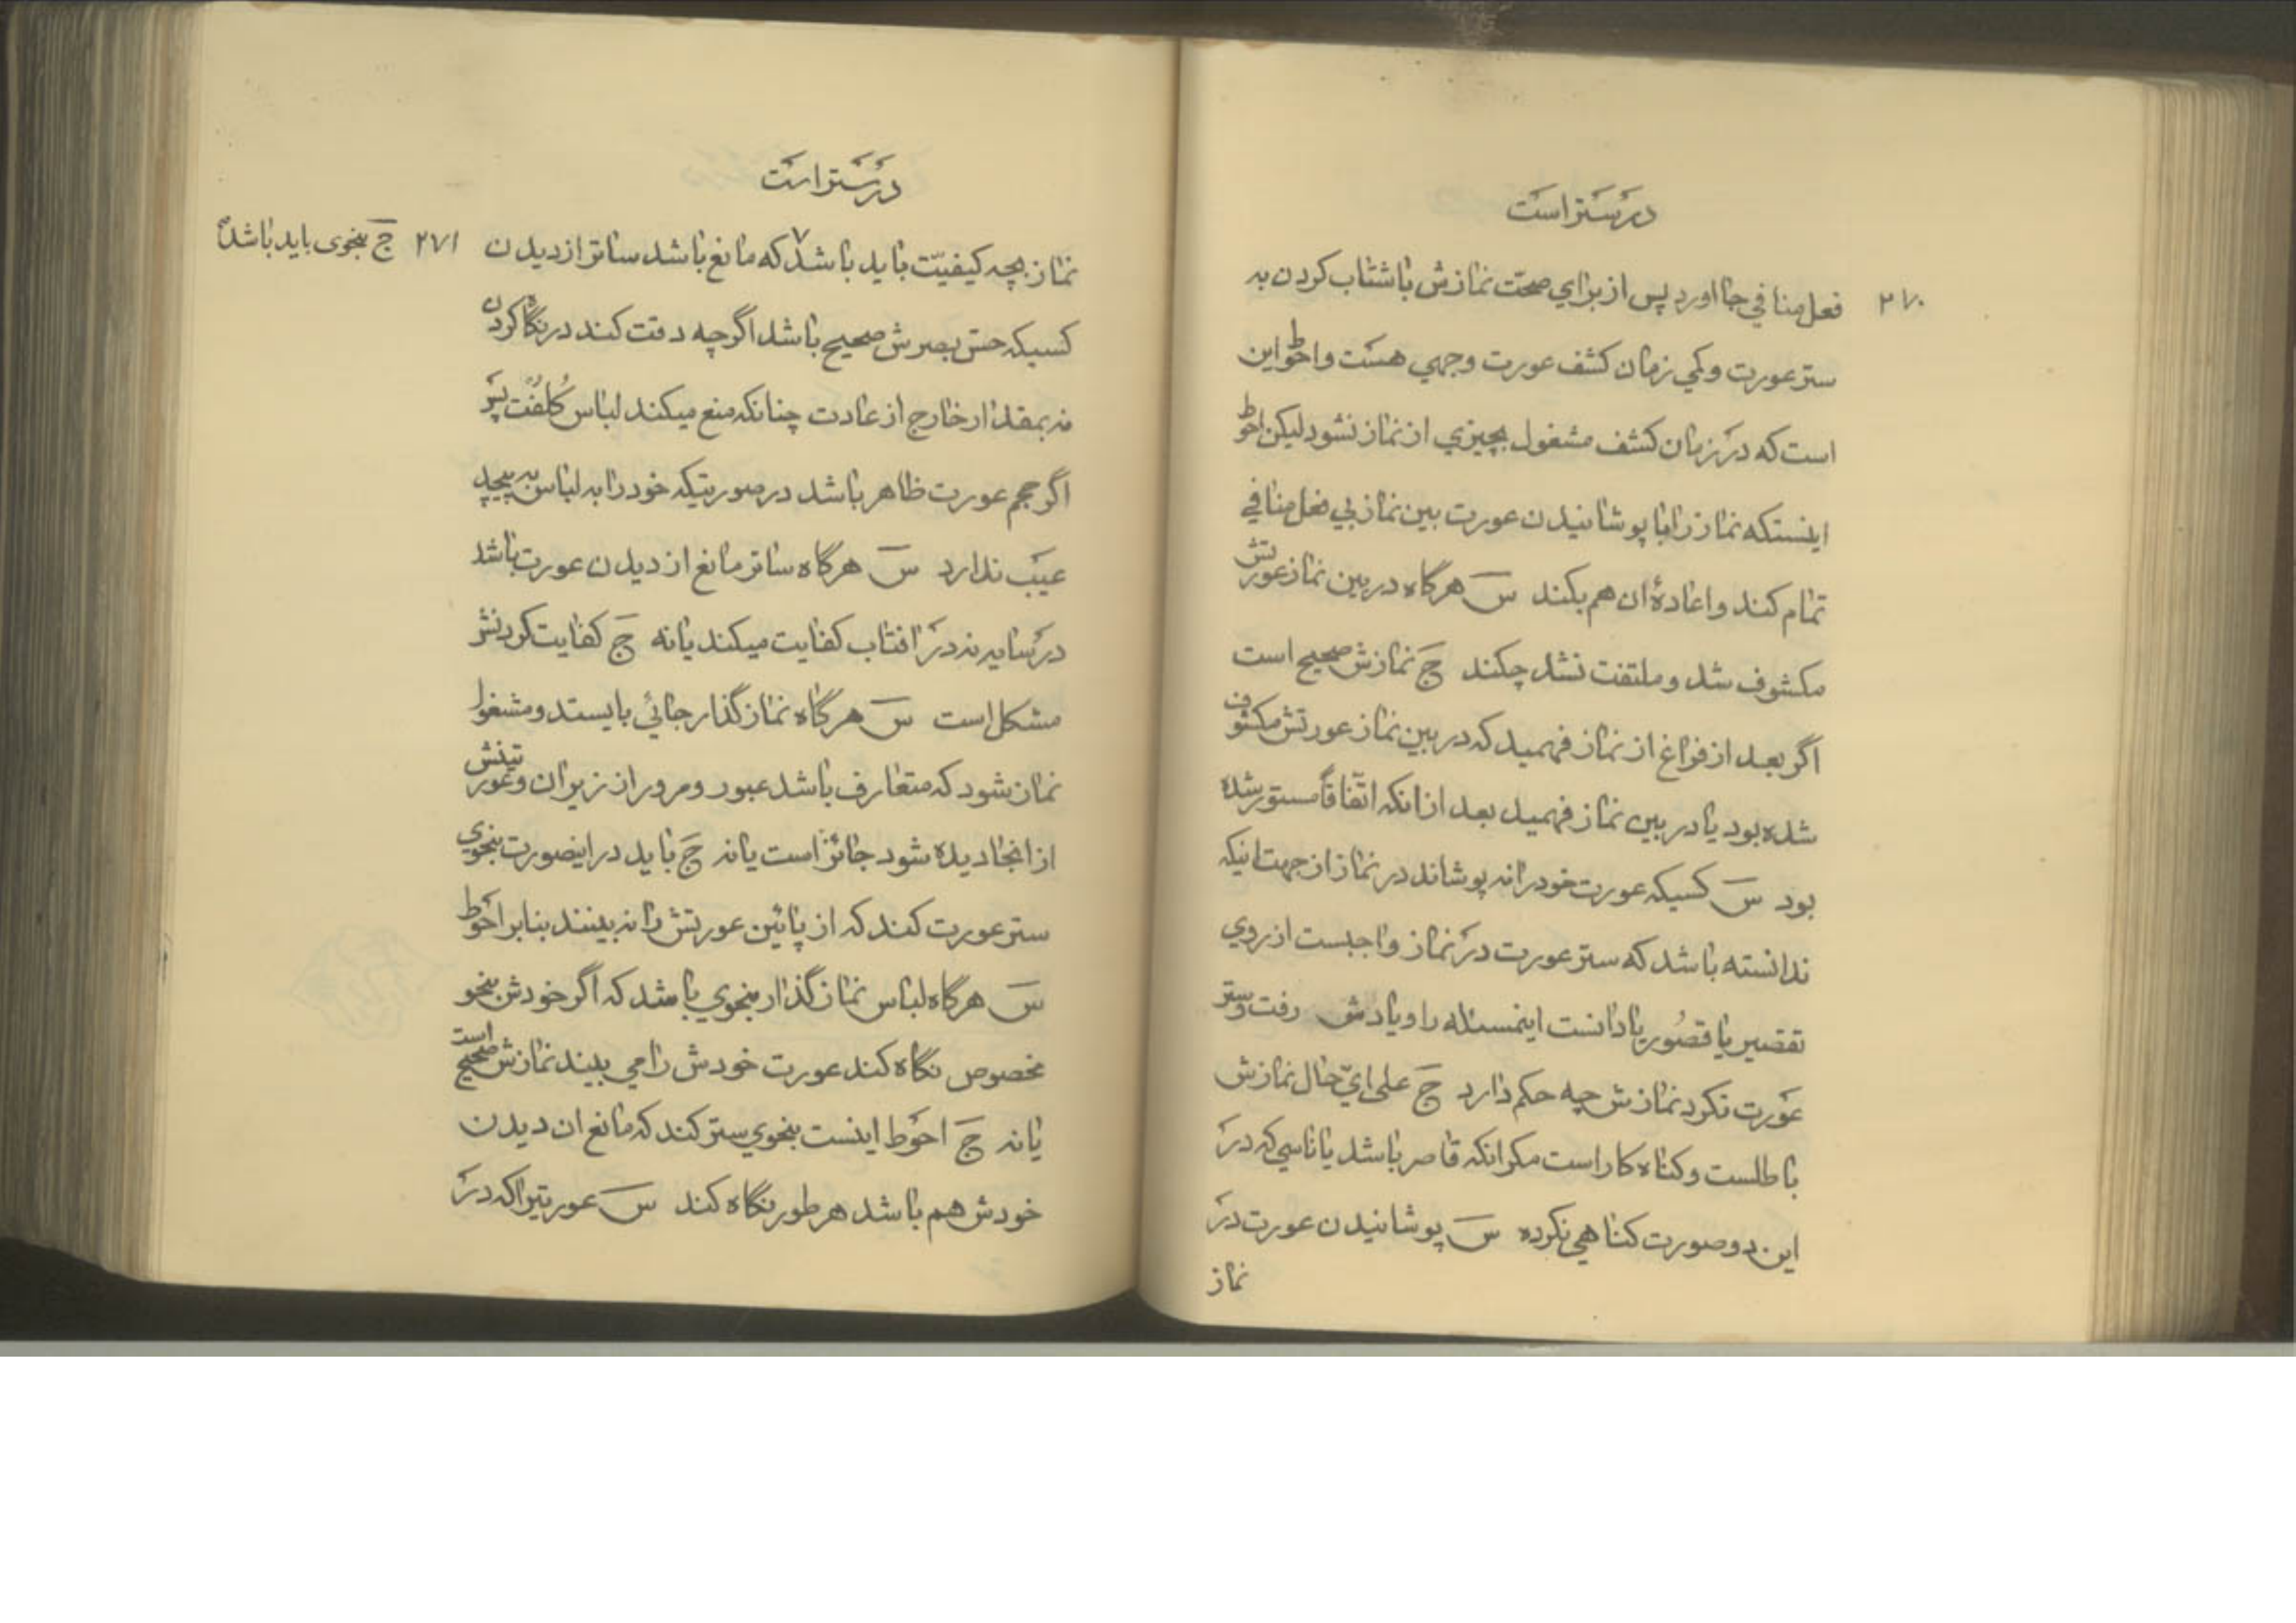 در ستر است
۲۷۰
فعل منافي جا اورد پس از براي صحت نمازش باشتاب کردن به
ستر عورت و کمي زمان کشف عورت وجهي هست و احوط این
است که در زمان کشف مشغول بچیزي از نماز نشود لیکن احوط
اینستکه نماز را با پوشانیدن عورت بین نماز بي فعل منافي
تمام کند و اعادهٔ ان هم بکند س هرگاه در بین نماز عورتش
مکشوف شد و ملتفت نشد چکند ج نمازش صحیح است
اگر بعد از فراغ از نماز فهمید که در بین نماز عورتش مکشوف
شده بود یا در بین نماز فهمید بعد از انکه اتّفاقاً مستور شده
بود س کسیکه عورت خود را نه پوشاند در نماز از جهت اینکه
ندانسته باشد که ستر عورت در نماز واجبست از روي
تقصیر یا قصُور یا دانست اینمسئله را و یادش رفت و ستر
عورت نکرد نمازش چه حکم دارد ج علی ايّ حال نمازش
باطلست و کناه کار است مکر انکه قاصر باشد یا ناسي که در
این دو صورت کناهي نکرده س پوشانیدن عورت در
نماز
در ستر است
نماز بچه کیفیّت باید باشد ۷ که مانع باشد ساتر از دیدن
۲۷۱ ج بنحوی باید باشد
کسیکه حسّ بصرش صحیح باشد اگر چه دقت کند در نگاه کردن
نه بمقدار خارج از عادت چنانکه منع میکند لباس کُلفُت پَس
اگر حجم عورت ظاهر باشد در صورتیکه خود را به لباس به پیچد
عیب ندارد س هرگاه ساتر مانع از دیدن عورت باشد
در سایه نه در افتاب کفایت میکند یا نه ج کفایت کردنش
مشکل است س هرگاه نماز گذار جائي بایستد و مشغول
نماز شود که متعارف باشد عبور و مرور از زیر ان و عورتینش
از انجا دیده شود جائز است یا نه ج باید در اینصورت بنحوي
ستر عورت کند که از پائین عورتش را نه بینند بنابر احوط
س هرگاه لباس نماز گذار بنحوي باشد که اگر خودش بنحو
مخصوص نگاه کند عورت خودش را مي بیند نمازش صحیح است
یا نه ج احوط اینست بنحوي ستر کند که مانع ان دیدن
خودش هم باشد هر طور نگاه کند س عورتیرا که در